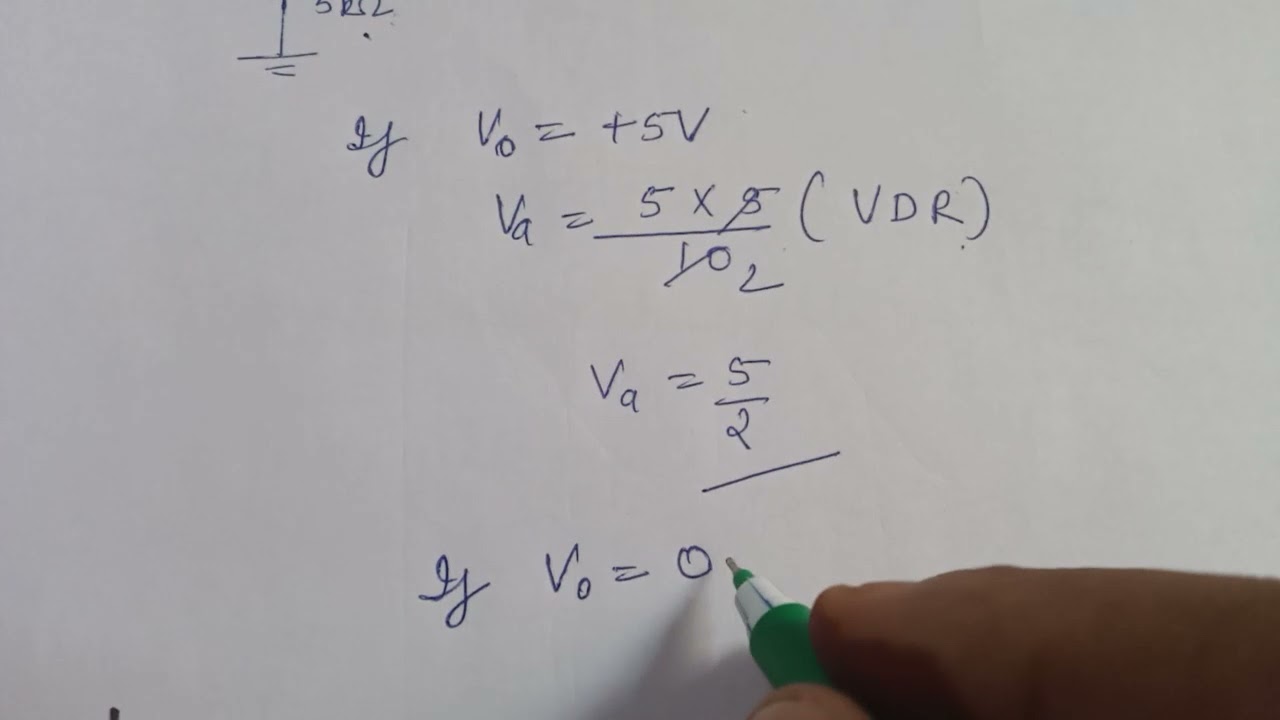 5kΩ
If V₀ = +5V
Vₐ = 5 × 5 / 10 2 (VDR)
Vₐ = 5 / 2
If V₀ = 0